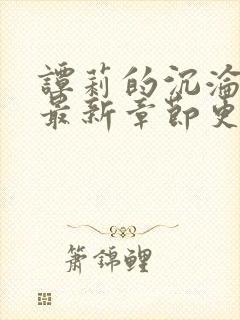 譚莉的沉淪
最新章節更
簫錦鯉